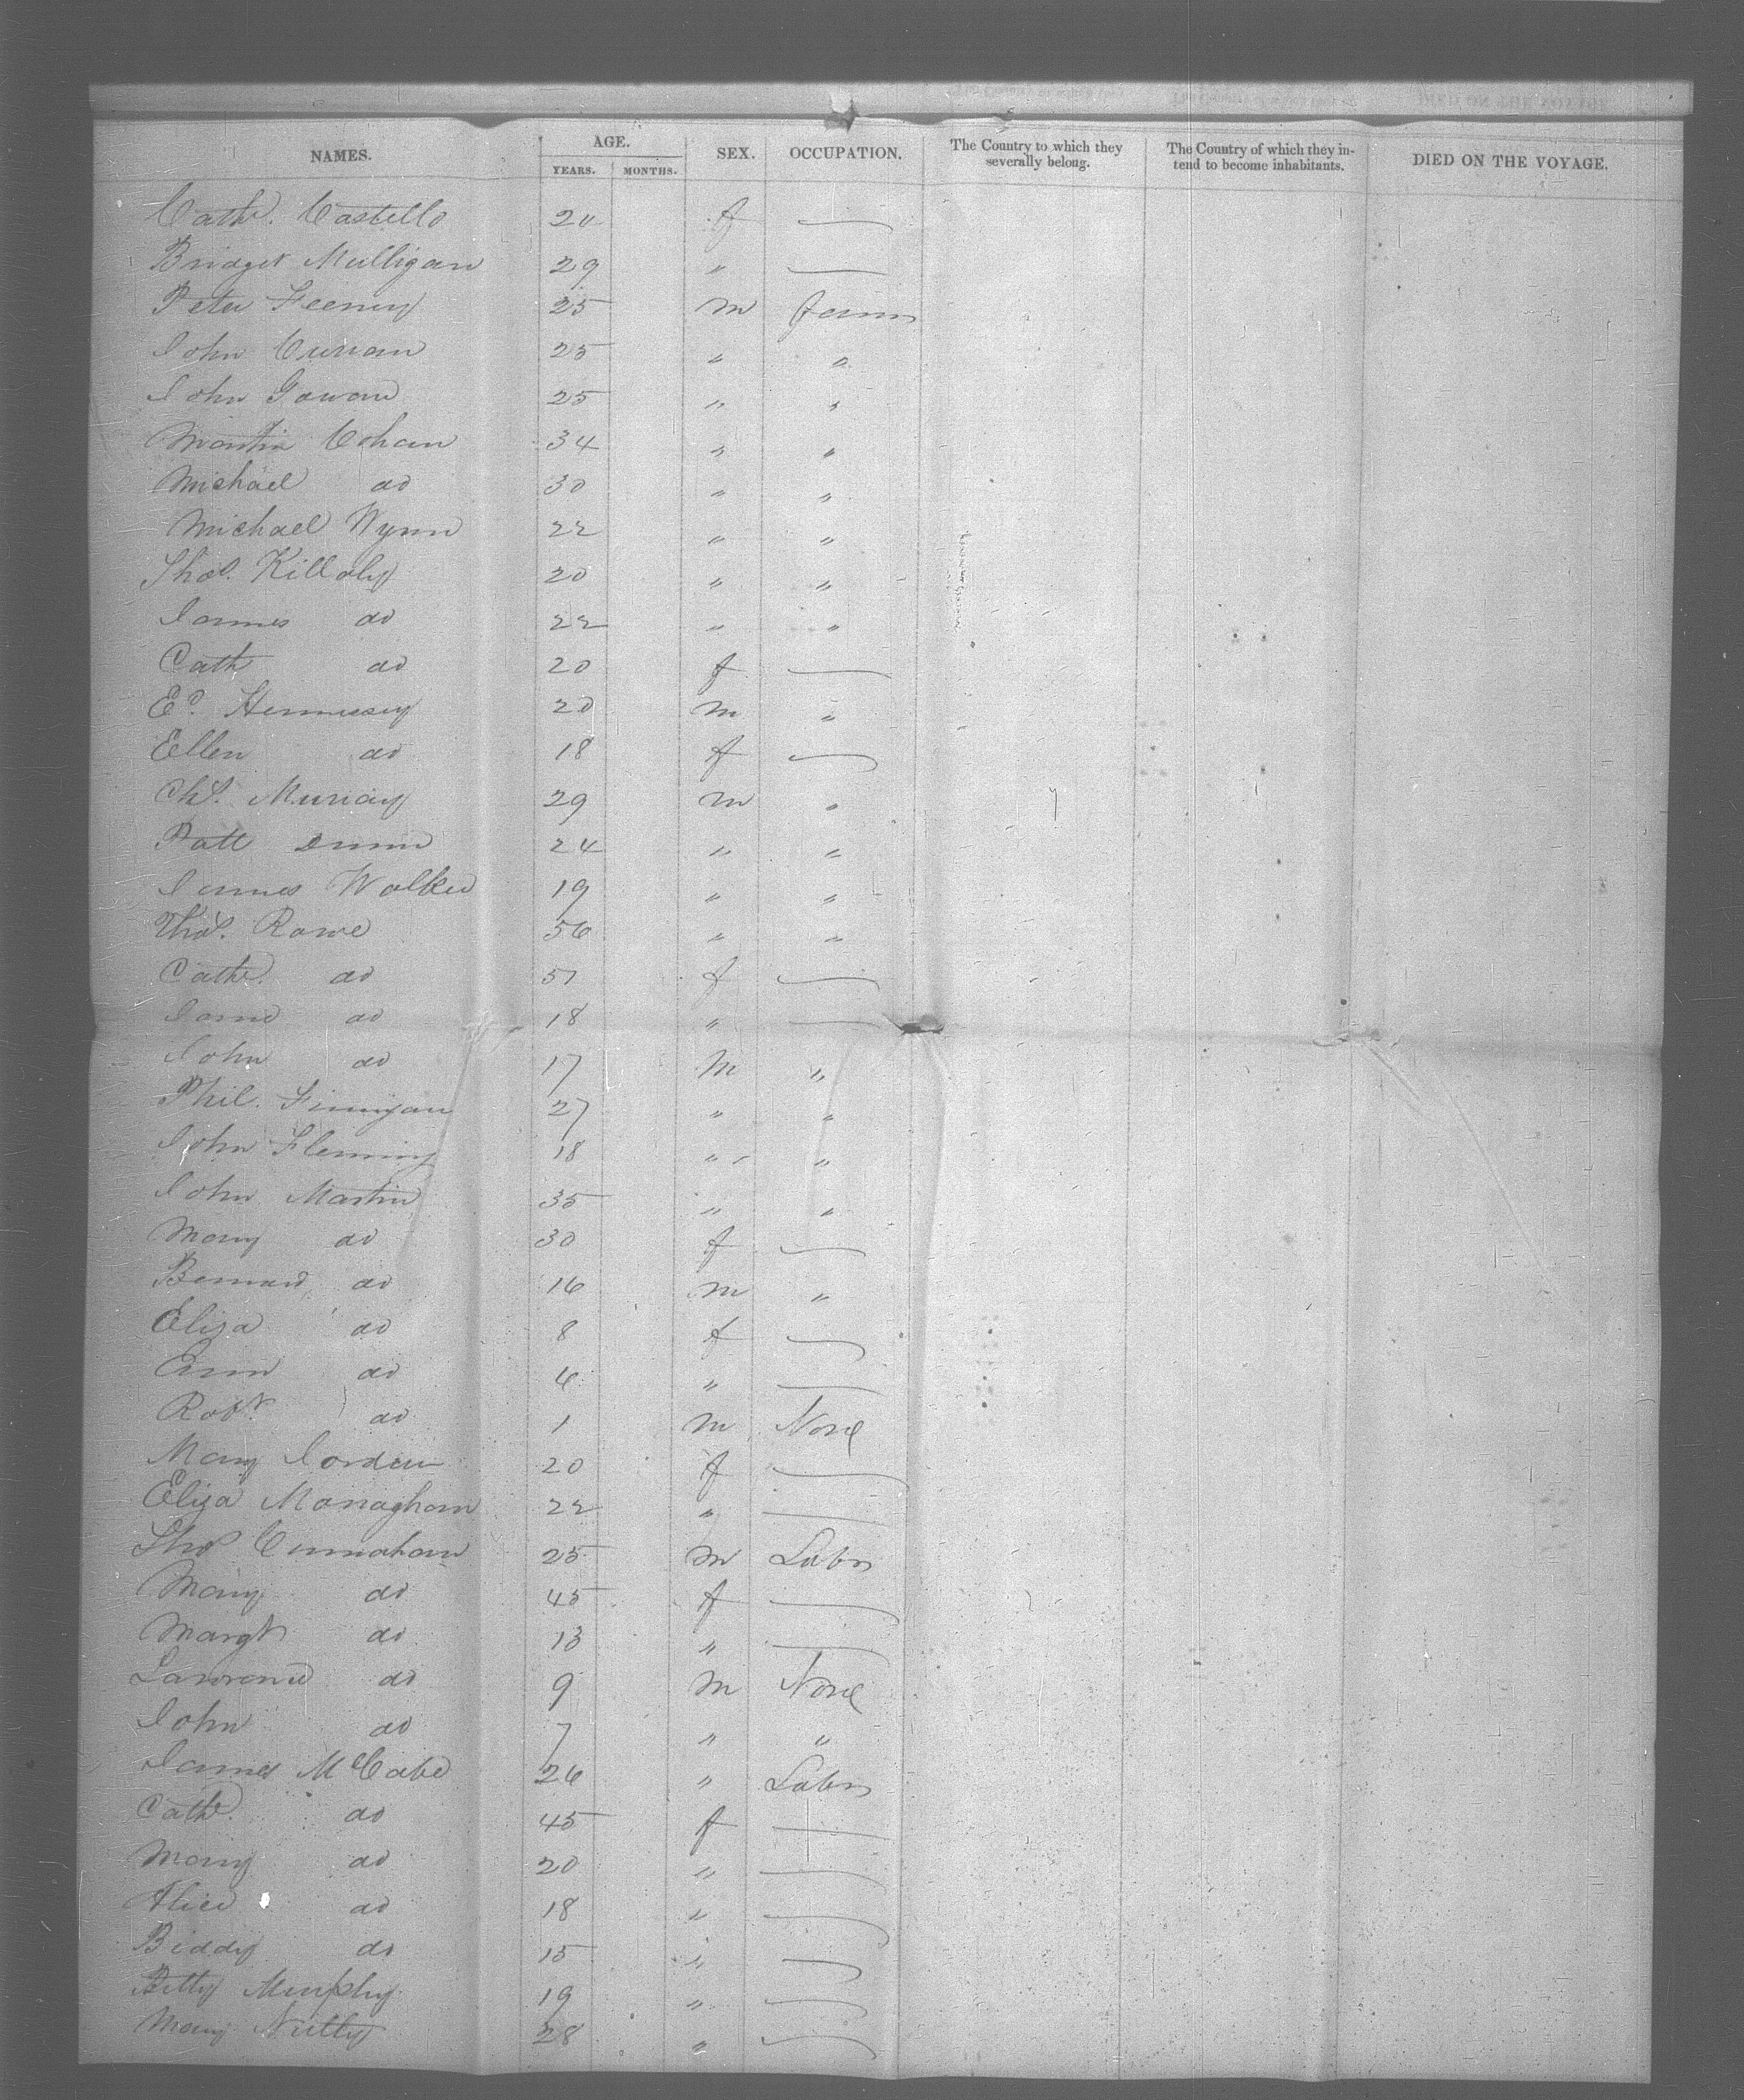 NAMES. AGE. SEX. OCCUPATION. The Country to which they severally belong. The Country of which they intend to become inhabitants. DIED ON THE VOYAGE.
YEARS. MONTHS.
Cathe. Castello 20 f —
Bridget Mulligan 29 " —
Peter Feeney 25 m farmr
John Curran 25 " "
John Gowan 25 " "
Martin Cohan 34 " "
Michael do 30 " "
Michael Wynn 22 " "
Thos. Killaly 20 " "
James do 22 " "
Cath do 20 f —
Ed. Hennessey 20 m "
Ellen do 18 f —
Chs. Murray 29 m "
Patt Dunn 24 " "
James Walker 19 " "
Thos. Rowe 56 " "
Cathe. do 57 f —
Jane do 18 " —
John do 17 m "
Phil. Finnigan 27 " "
John Fleming 18 " "
John Martin 35 " "
Mary do 30 f —
Bernard do 16 m "
Eliza do 8 f —
Ann do 6 " —
Robt. do 1 m None
Mary Jordan 20 f —
Eliza Monaghan 22 " —
Thos Cunnaham 25 m Labr
Mary do 45 f —
Margt do 13 " —
Lawrence do 9 m None
John do 7 " "
James McCabe 26 " Labr
Cathe. do 45 f —
Mary do 20 " —
Alice do 18 " —
Biddy do 15 " —
Betty Murphy 19 " —
Mary Nulty 28 " —